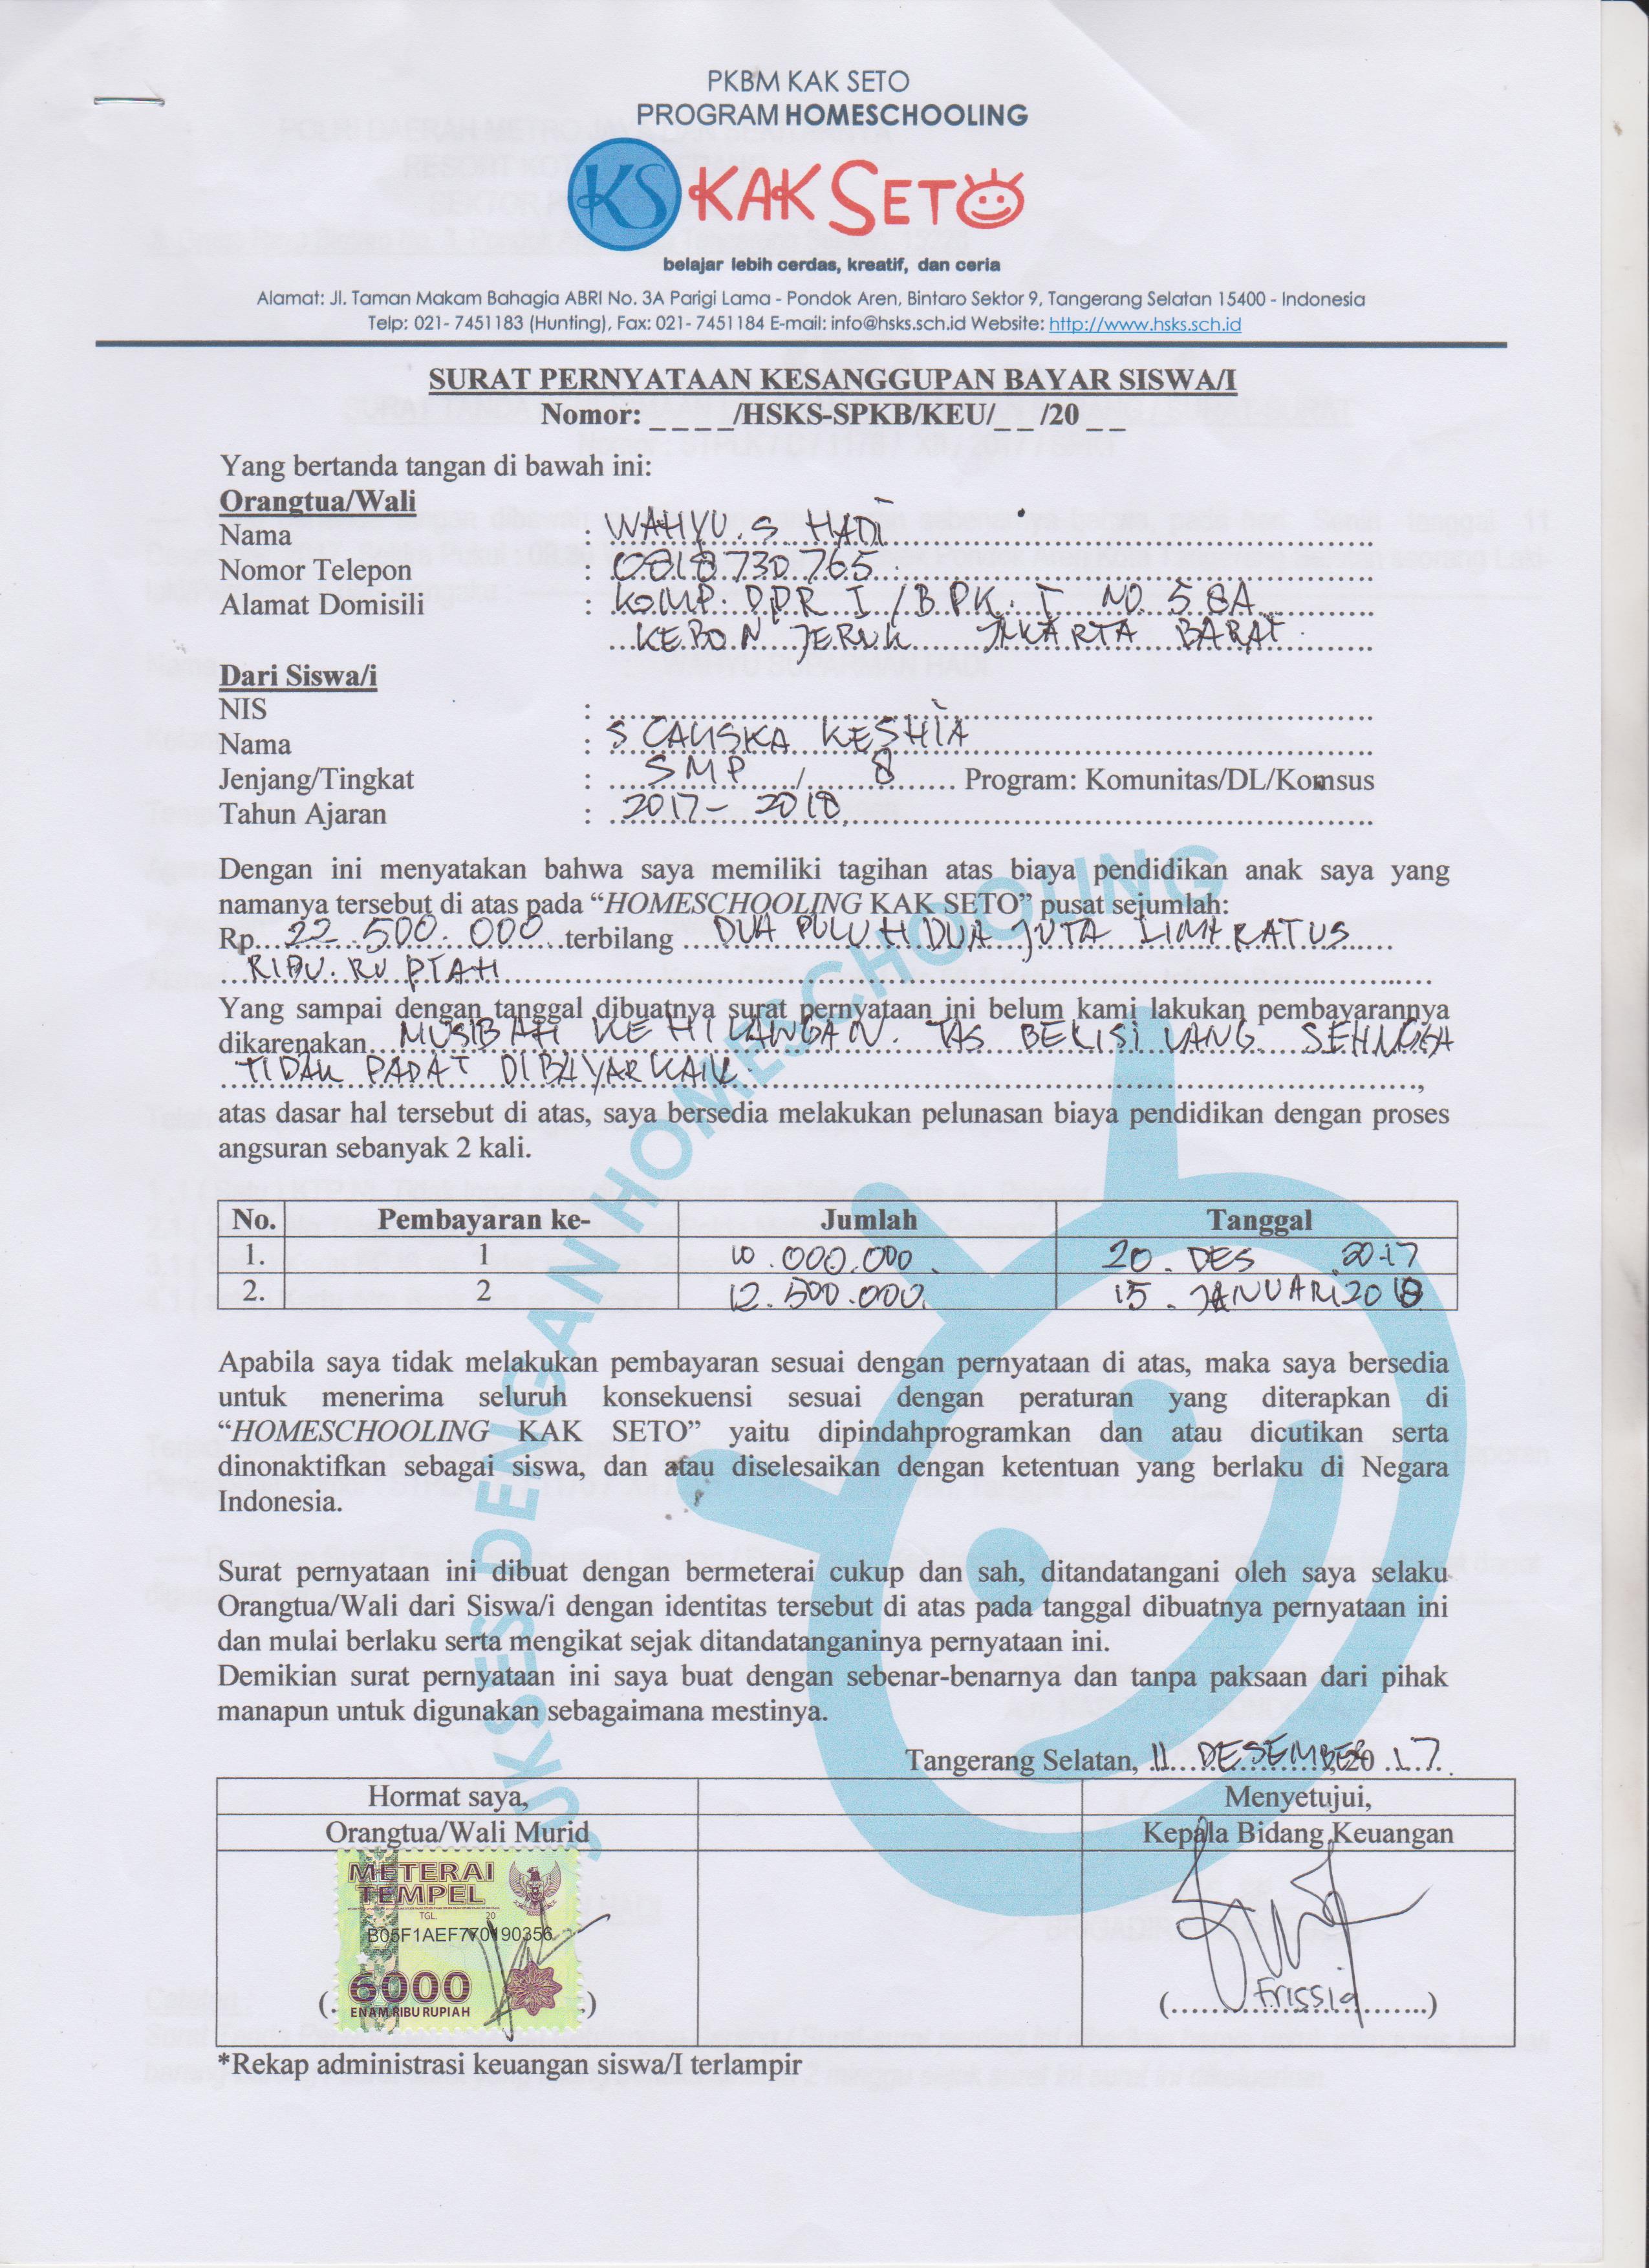 PKBM KAK SETO
PROGRAM HOMESCHOOLING
KS KAK SETO
belajar lebih cerdas, kreatif, dan ceria
Alamat: Jl. Taman Makam Bahagia ABRI No. 3A Parigi Lama - Pondok Aren, Bintaro Sektor 9, Tangerang Selatan 15400 - Indonesia
Telp: 021- 7451183 (Hunting), Fax: 021- 7451184 E-mail: info@hsks.sch.id Website: http://www.hsks.sch.id
SURAT PERNYATAAN KESANGGUPAN BAYAR SISWA/I
Nomor: _ _ _ _/HSKS-SPKB/KEU/_ _ /20 _ _
Yang bertanda tangan di bawah ini:
Orangtua/Wali
Nama : WAHYU. S. HADI
Nomor Telepon : 0818730765
Alamat Domisili : KOMP. DPR I /BPK. I NO 58A
KEBON JERUK JAKARTA BARAT.
Dari Siswa/i
NIS :
Nama : SCALISKA KESHIA
Jenjang/Tingkat : SMP / 8 Program: Komunitas/DL/Komsus
Tahun Ajaran : 2017 - 2018
Dengan ini menyatakan bahwa saya memiliki tagihan atas biaya pendidikan anak saya yang
namanya tersebut di atas pada “HOMESCHOOLING KAK SETO” pusat sejumlah:
Rp. 22.500.000 terbilang DUA PULUH DUA JUTA LIMA RATUS
RIBU. RUPIAH
Yang sampai dengan tanggal dibuatnya surat pernyataan ini belum kami lakukan pembayarannya
dikarenakan MUSIBAH KEHILANGAN. TAS BERISI UANG SEHINGGA
TIDAK DAPAT DIBAYARKAN.
atas dasar hal tersebut di atas, saya bersedia melakukan pelunasan biaya pendidikan dengan proses
angsuran sebanyak 2 kali.
No. Pembayaran ke- Jumlah Tanggal
1. 1 10.000.000. 20. DES 2017
2. 2 12.500.000. 15. JANUARI 2018
Apabila saya tidak melakukan pembayaran sesuai dengan pernyataan di atas, maka saya bersedia
untuk menerima seluruh konsekuensi sesuai dengan peraturan yang diterapkan di
“HOMESCHOOLING KAK SETO” yaitu dipindahprogramkan dan atau dicutikan serta
dinonaktifkan sebagai siswa, dan atau diselesaikan dengan ketentuan yang berlaku di Negara
Indonesia.
Surat pernyataan ini dibuat dengan bermeterai cukup dan sah, ditandatangani oleh saya selaku
Orangtua/Wali dari Siswa/i dengan identitas tersebut di atas pada tanggal dibuatnya pernyataan ini
dan mulai berlaku serta mengikat sejak ditandatanganinya pernyataan ini.
Demikian surat pernyataan ini saya buat dengan sebenar-benarnya dan tanpa paksaan dari pihak
manapun untuk digunakan sebagaimana mestinya.
Tangerang Selatan, 11 DESEMBER 2017
Hormat saya, Menyetujui,
Orangtua/Wali Murid Kepala Bidang Keuangan
METERAI
TEMPEL
TGL. 20
B05F1AEF770190356
6000
ENAM RIBU RUPIAH
(Frissia)
*Rekap administrasi keuangan siswa/I terlampir
UKSES DENGAN HOMESCHOOLING